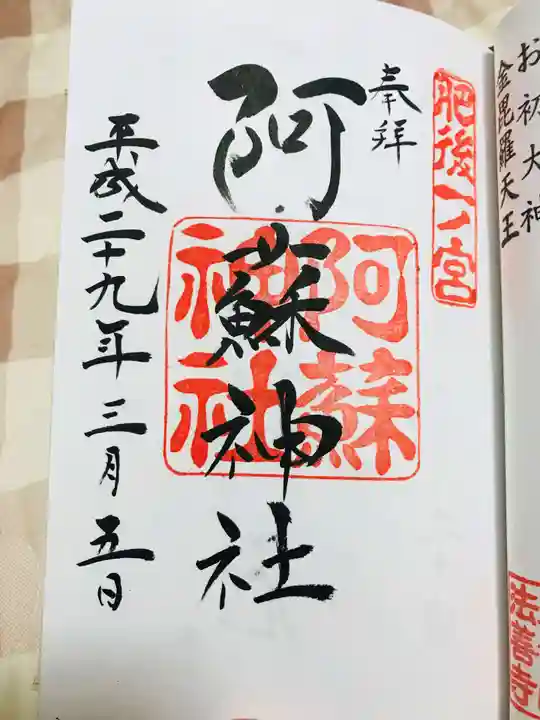 お初大神
金毘羅天王
法善寺
肥後一ノ宮
奉拝
阿蘇神社
阿蘇
神社
平成二十九年三月五日